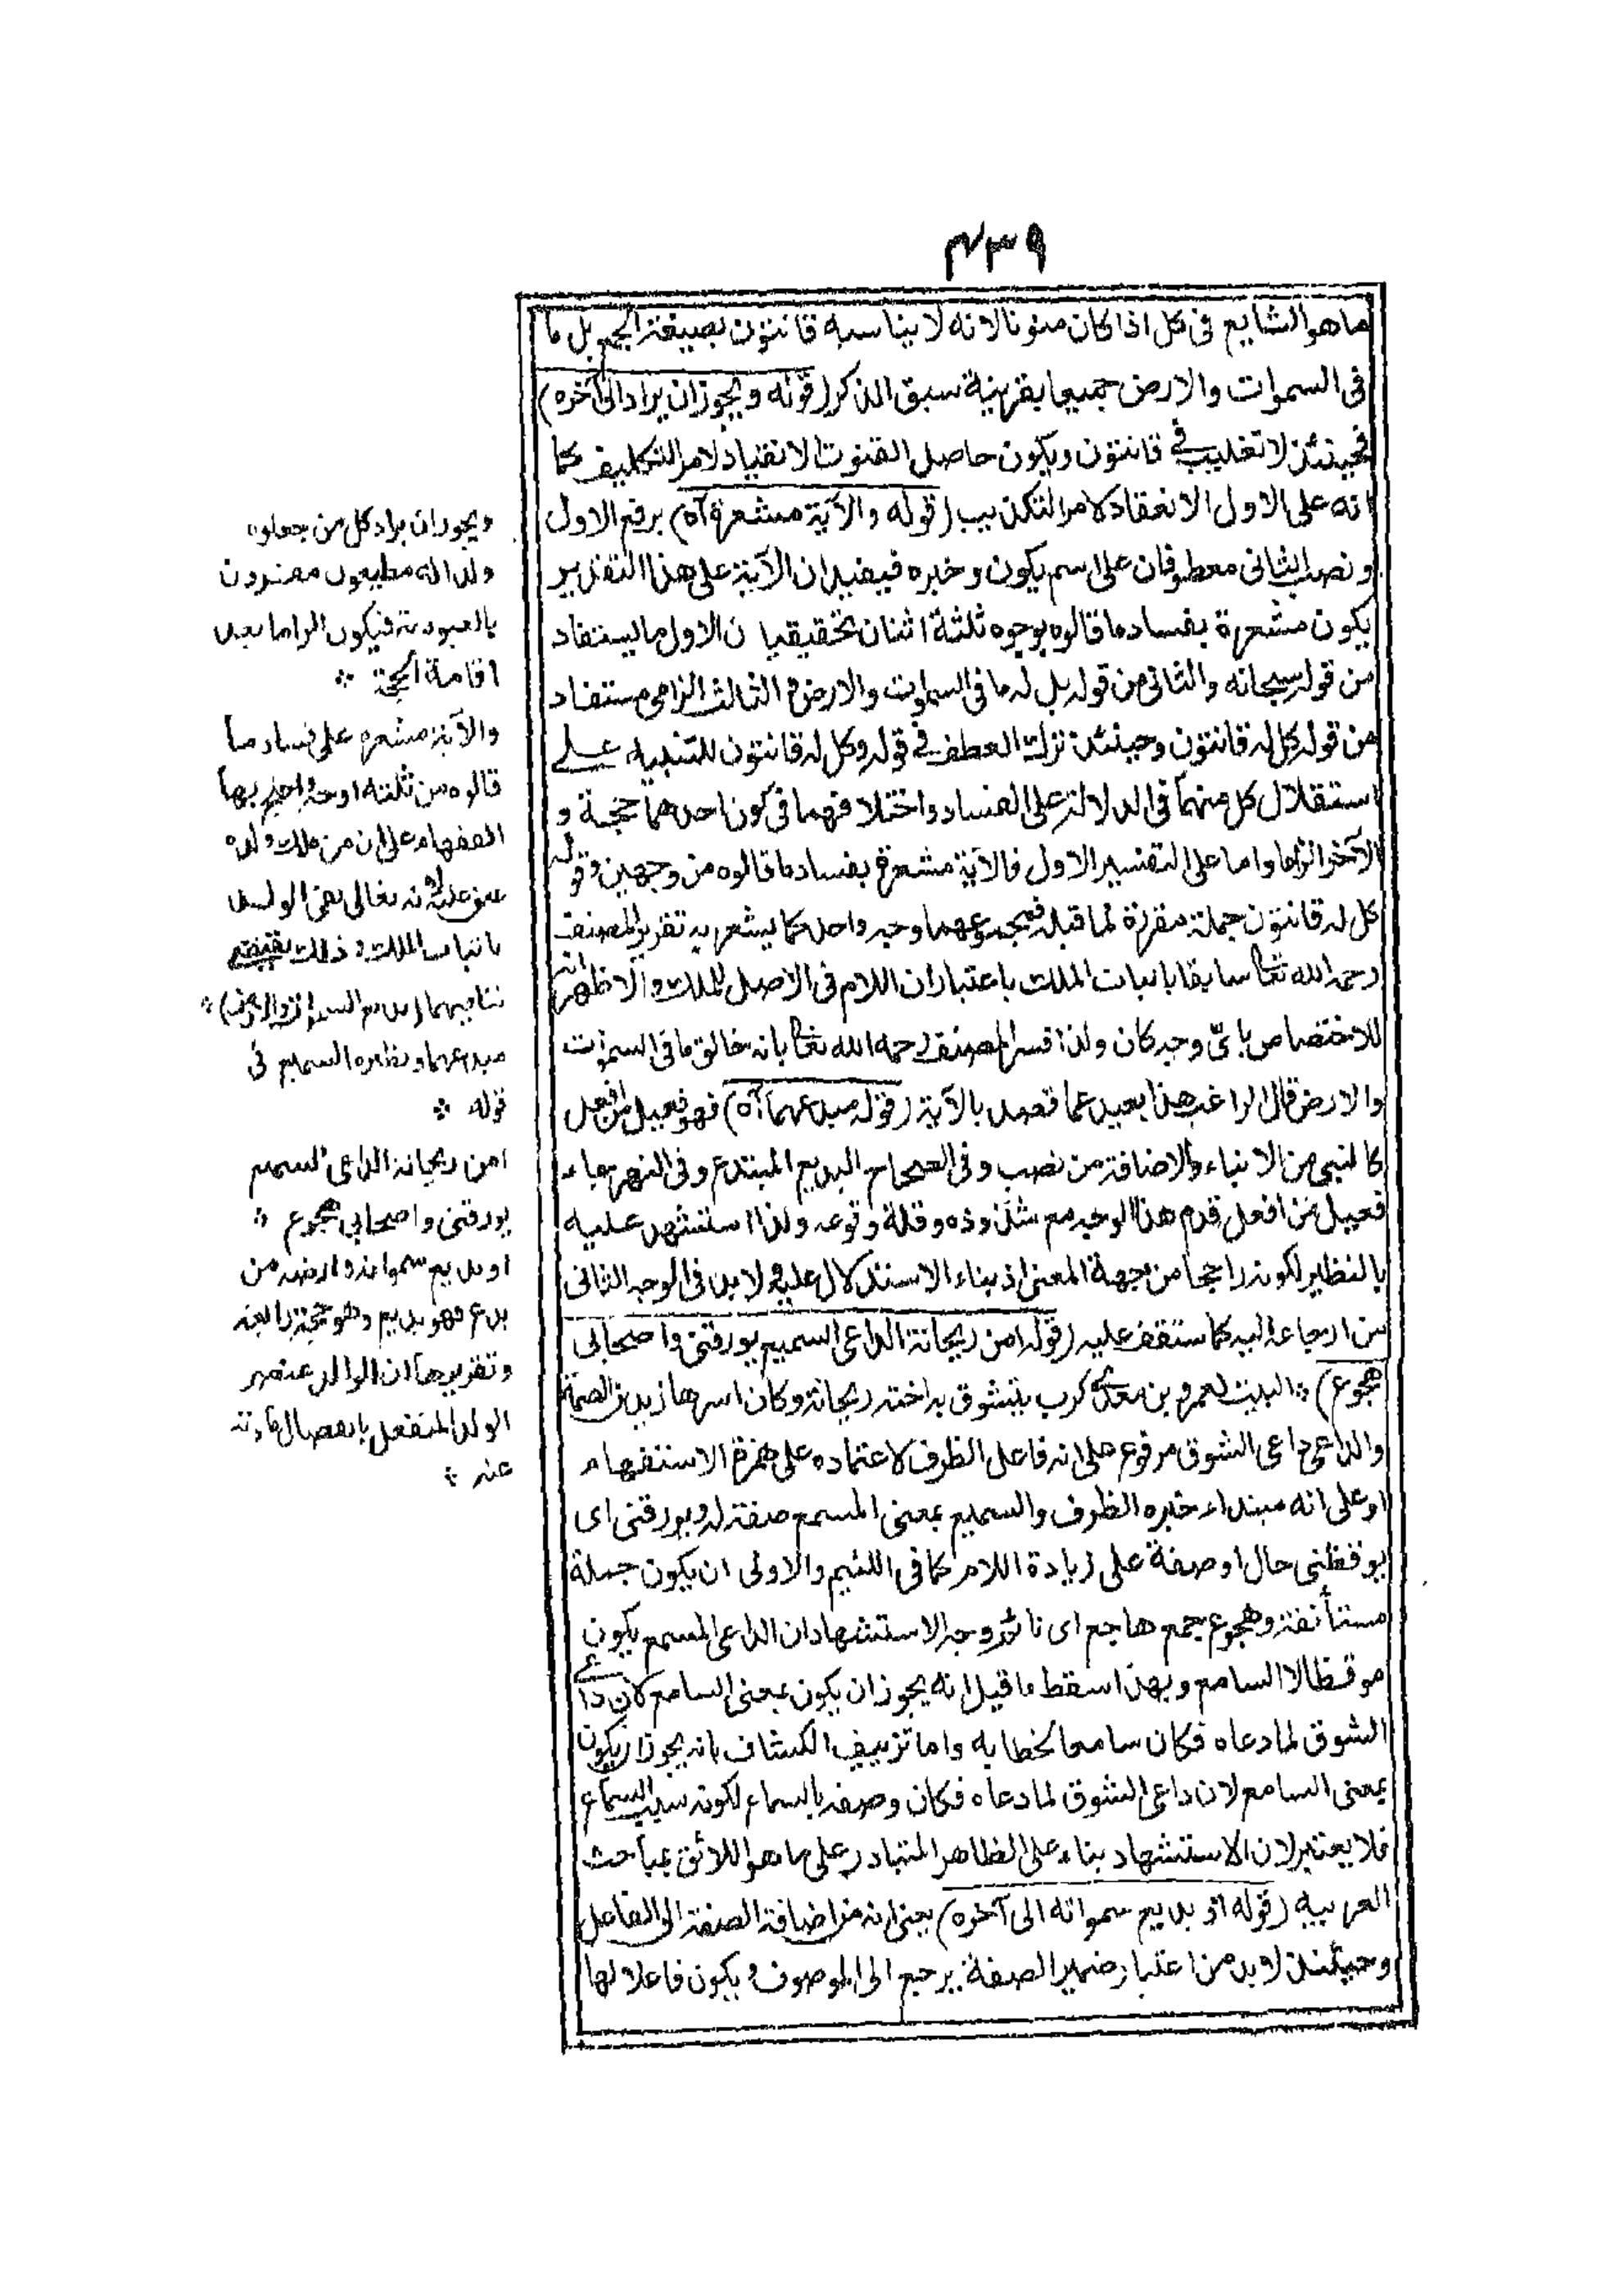 ٤٣٩
ما هو الشايع فى كل اذا كان منونا لانه لا يناسبه قانتون بصيغة الجمع بل ما
فى السموات والارض جميعا بقرينة سبق الذكر (قوله ويجوز ان يراد الى آخره)
فحينئذ لا تغليب فى قانتون ويكون حاصل القنوت الانقياد لامر التكليف كما
انه على الاول الانقياد لامر التكذيب (قوله والآية مشعرة آه) برفع الاول
ونصب الثانى معطوفان على اسم يكون وخبره فيفيد ان الآية على هذا التقدير
يكون مشعرة بفساد ما قالوه بوجوه ثلثة اثنان تحقيقيان الاول ما يستفاد
من قوله سبحانه والثانى من قوله بل له ما فى السموات والارض و الثالث الزامى مستفاد
من قوله كل له قانتون وحينئذ ترك العطف فى قوله وكل له قانتون للتنبيه على
استقلال كل منهما فى الدلالة على الفساد واختلافهما فى كون احدهما حجة و
الآخر الزاما واما على التفسير الاول فالآية مشعرة بفساد ما قالوه من وجهين وقوله
كل له قانتون جملة مقررة لما قبله فمجموعهما وجه واحد كما يشعر به تقرير المصنف
رحمه الله تعا سابقا باثبات الملك باعتبار ان اللام فى الاصل للملك والاظهر انه
للاختصاص باىّ وجه كان ولذا فسر المصنف رحمه الله تعا بانه خالق ما فى السموات
والارض قال الراغب هذا بعيد عما قصد بالآية (قوله مبدعهما آه) فهو فعيل من افعل
كالنبى من الانباء والاضافة من نصب وفى الصحاح البديع المبتدع وفى النهر جاء
فعيل من افعل قدم هذا الوجه مع شذوذه وقلة وقوعه ولذا استشهد عليه
بالنظير لكونه راجحا من جهة المعنى اذ بناء الاستدلال عليه ولا بد فى الوجه الثانى
من ارجاعه اليه كما ستقف عليه (قوله امن ريحانة الداعى السميع يورقنى واصحابى
هجوع) * البيت لعمرو بن معدى كرب يتشوق به اخته ريحانة وكان اسرها زيد بن الصمة
والداعى داعى الشوق مرفوع على انه فاعل الظرف لاعتماده على همزة الاستفهام
او على انه مبتداء خبره الظرف والسميع بمعنى المسمع صفة له ويورقنى اى
يوقظنى حال او صفة على زيادة اللام كما فى اللئيم والاولى ان يكون جملة
مستأنفة وهجوع جمع هاجع اى نائم ووجه الاستشهاد ان الداعى المسمع يكون
موقظا لا السامع وبهذا سقط ما قيل انه يجوز ان يكون بمعنى السامع لان داعى
الشوق لما دعاه فكان سامعا لخطابه واما تزييف الكشاف بانه يجوز ان يكون
بمعنى السامع لان داعى الشوق لما دعاه فكان وصفه بالسماع لكونه سبب السماع
فلا يعتبر لان الاستشهاد بناء على الظاهر المتبادر على ما هو اللائق بمباحث
العربية (قوله او بديع سمواته الى آخره) يعنى انه من اضافة الصفة الى الفاعل
وحينئذ لا بد من اعتبار ضمير الصفة يرجع الى الموصوف ويكون فاعلا لها
ويجوز ان يراد كل من جعلوه
ولدا له مطيعون مقرون
بالعبودية فيكون الزاما بعد
اقامة الحجة *
والآية مشعرة على فساد ما
قالوه من ثلثة اوجه واحتج بها
الفقهاء على ان من ملك ولده
عتق عليه لانه تعالى نفى الولد
باثبات الملك وذلك يقتضى
تنافيهما (بديع السموات والارض) *
مبدعهما ونظيره السميع فى
قوله *
امن ريحانة الداعى السميع
يورقنى واصحابى هجوع *
او بديع سمواته وارضه من
بدع فهو بديع وهو حجة رابعة
وتقريرها ان الوالد عنصر
الولد المنفعل بانفصال مادته
عنه *